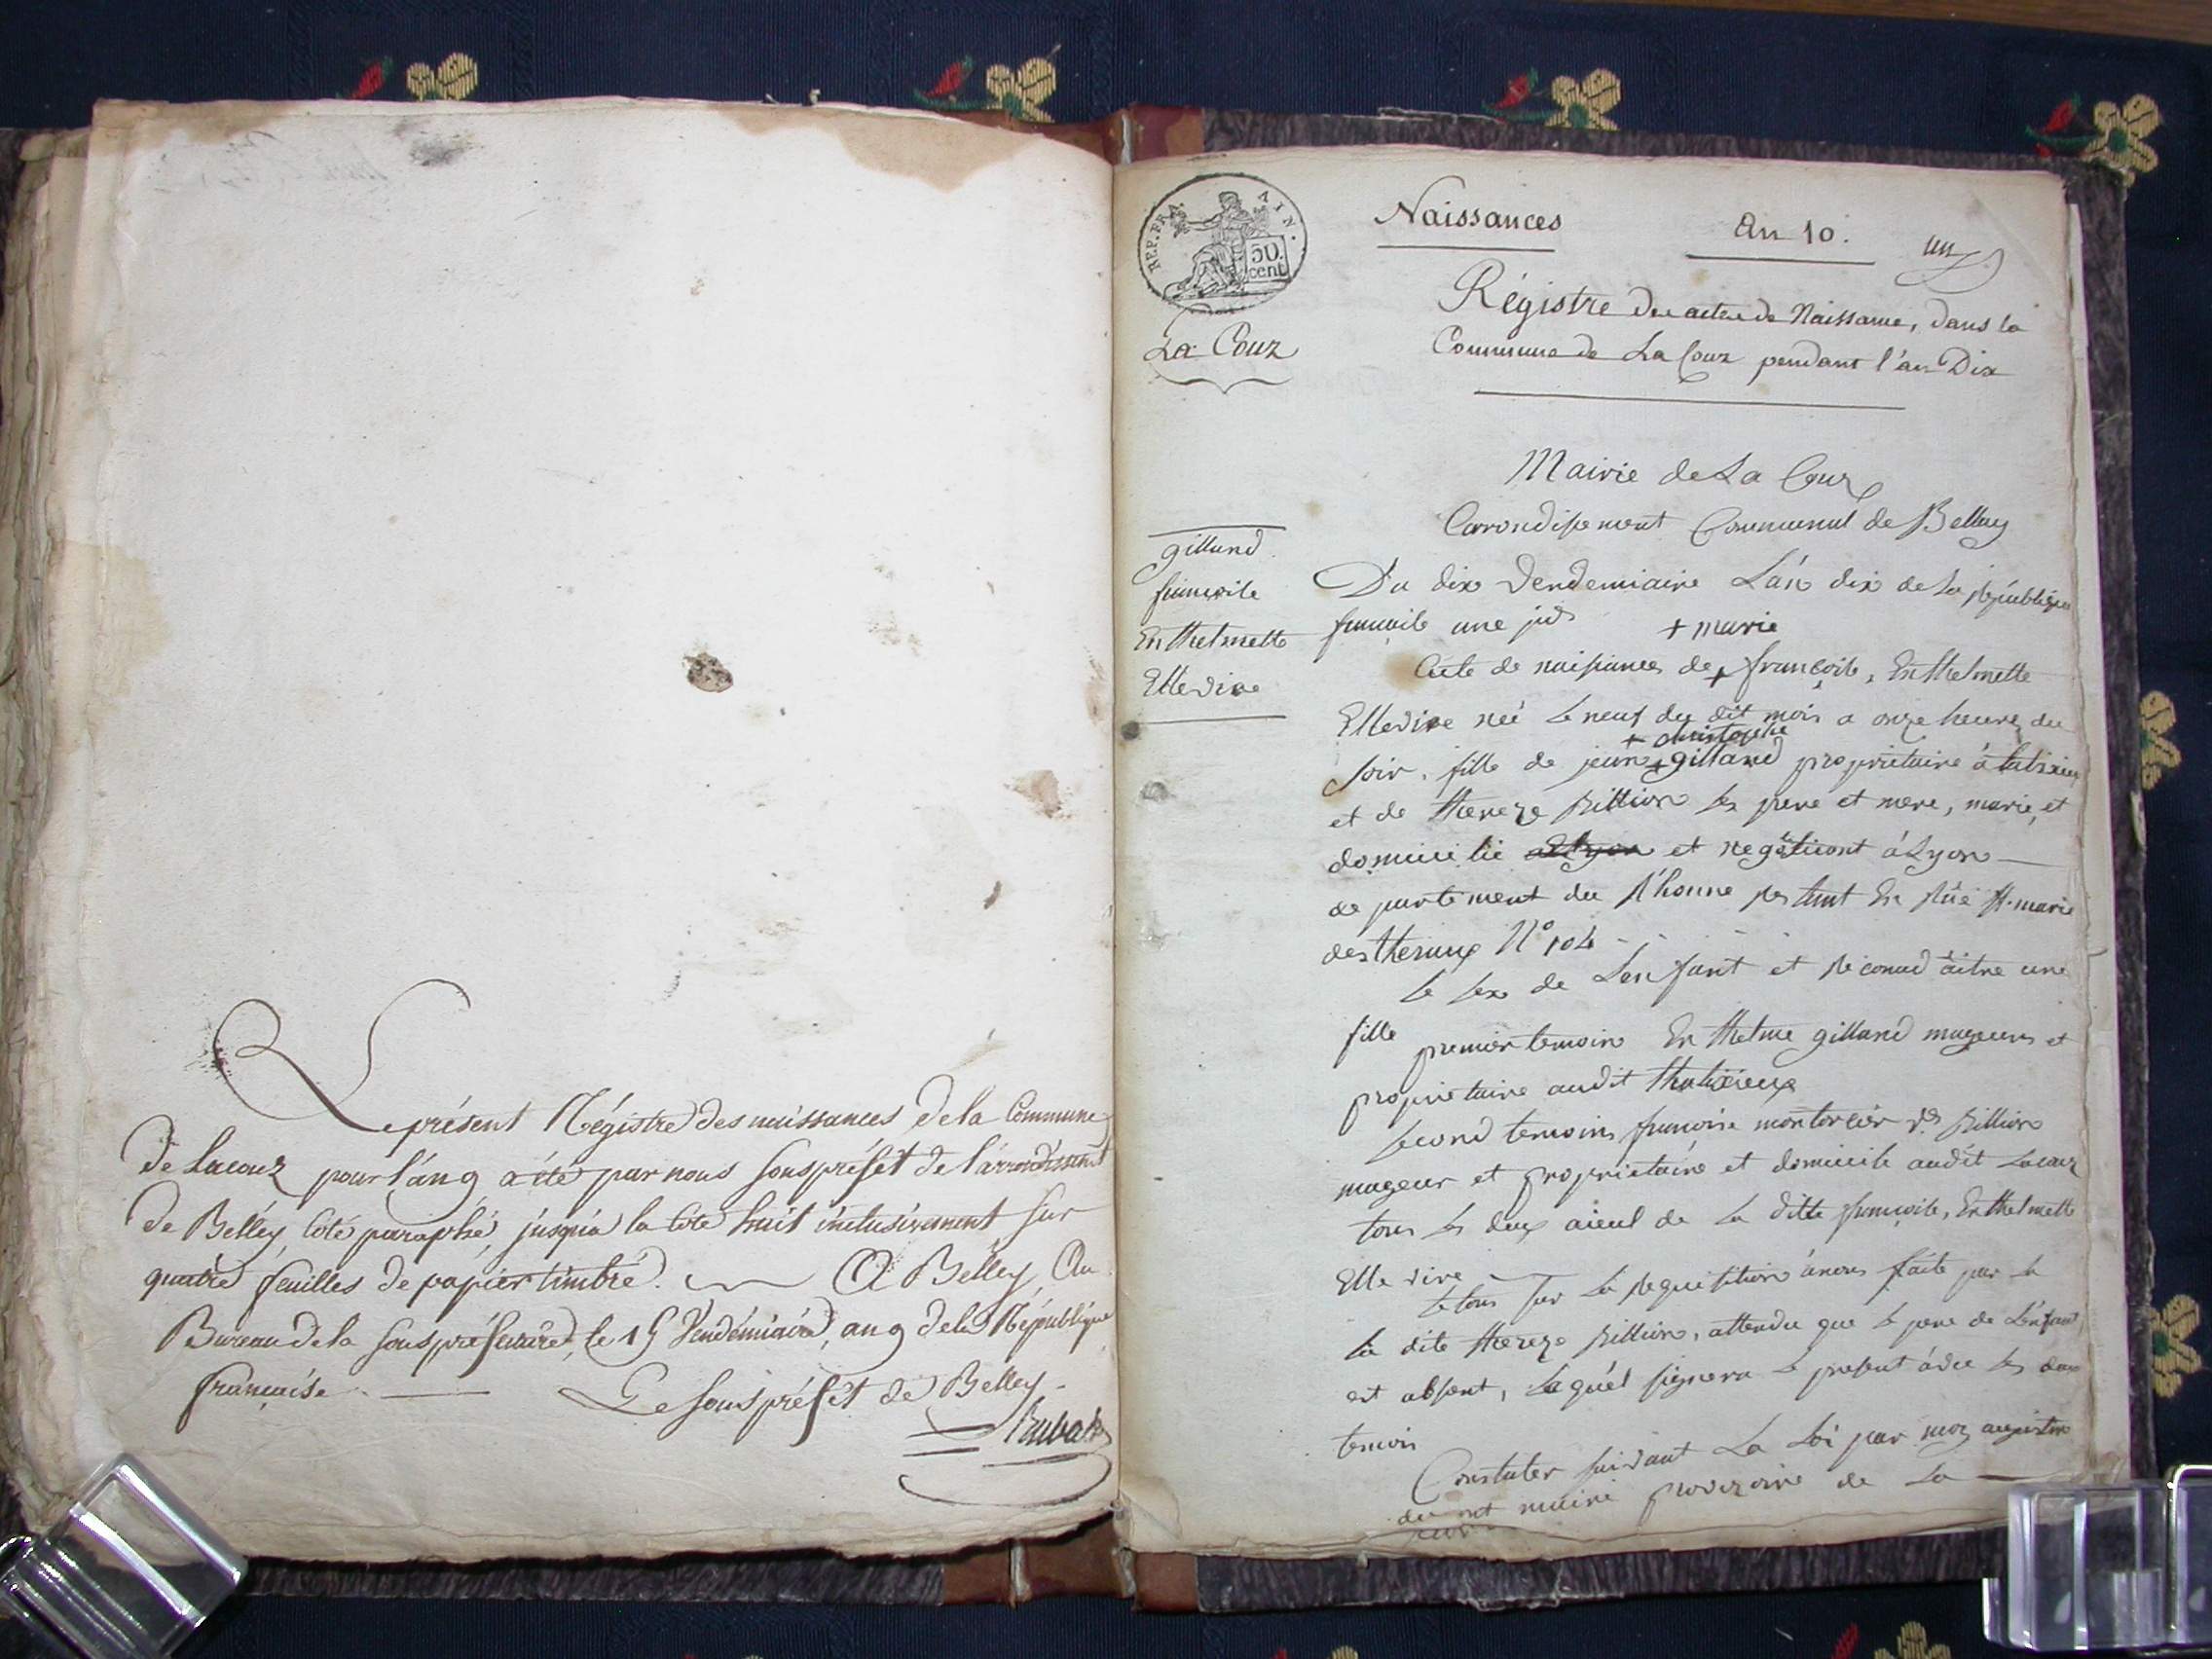 Le présent Régistre des naissances de la Commune
de Lacouz pour l'an 9 a été par nous sous préfét de l'arrondissement
de Belléy, coté paraphé, jusqu'a la cote huit inclusivement sur
quatre feuilles de papier timbré. A Belléy, Au
Bureau de la sous préfecture, le 15 Vendémiaire, an 9 de la République
française
Le sous préfét de Belley
Rubat
REP. FRA. AIN.
50 cent
La Couz
Naissances An 10. un
Régistre des actes de Naissance, dans la
Commune de La Couz pendant l'an Dix
Mairie de La Couz
Carrondissement Communal de Belley
gilland
françoise
Enthelmette
Elledire
Du dix vendemiaire L'an dix de la République
françoise une jud
+ marie
acte de naissance de + françoise, Enthelmette
Elledire neé le neuf du dit mois a onze heures du
+ christophe
soir, fille de jean + gilland propriétaire à
et de thereze Billion ses pere et mere, marié, et
domicilié et negotiant à Lyon
departement du Rhonne restant En Rüe St. marie
des theraux N° 104
le sex de Lenfant et Reconud aitre une
fille
premier temoin Enthelme gilland mageur et
proprietaire audit
second temoins françoise montorcier Billion
mageur et proprietaire et domicile audit Lacouz
tous les deux aieul de la ditte françoise, Enthelmette
Elledire
le tous sur la Requisition à nous faite par la
la dite thereze Billion, attendu que le pere de L'enfant
est absent, Lequ'el signera le present àvec les deux
temoin
Constater suivant La Loi par moy
maire provizoire de La